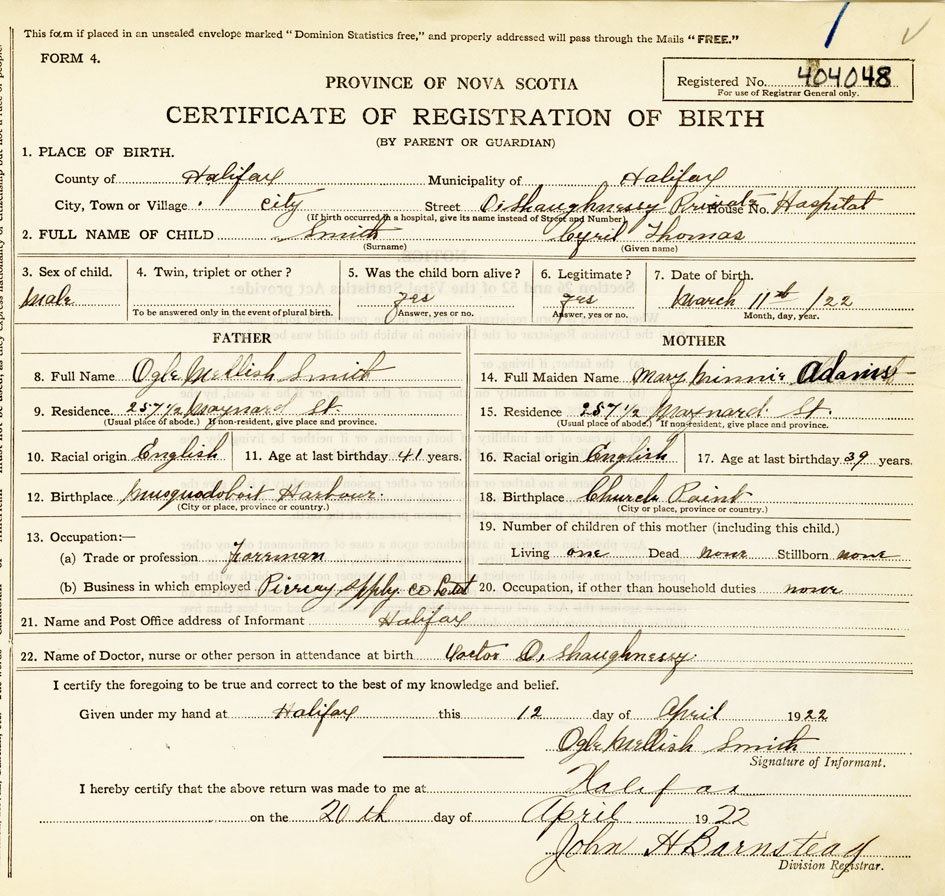 This form if placed in an unsealed envelope marked "Dominion Statistics free," and properly addressed will pass through the Mails "FREE."
FORM 4.
Registered No. 404048
For use of Registrar General only.
PROVINCE OF NOVA SCOTIA
CERTIFICATE OF REGISTRATION OF BIRTH
(BY PARENT OR GUARDIAN)
1. PLACE OF BIRTH.
County of Halifax Municipality of Halifax
City, Town or Village City Street O.Shaughnessy Private House No. Hospital
(If birth occurred in a hospital, give its name instead of Street and Number)
2. FULL NAME OF CHILD Smith Cyril Thomas
(Surname) (Given name)
3. Sex of child. 4. Twin, triplet or other? 5. Was the child born alive? 6. Legitimate? 7. Date of birth.
Male yes yes March 11th /22
To be answered only in the event of plural birth. Answer, yes or no. Answer, yes or no. Month, day, year.
FATHER MOTHER
8. Full Name Ogle Mellish Smith 14. Full Maiden Name Mary Minnie Adams
9. Residence. 257 1/2 Maynard St. 15. Residence 257 1/2 Maynard St.
(Usual place of abode.) If non-resident, give place and province. (Usual place of abode.) If non-resident, give place and province.
10. Racial origin English 11. Age at last birthday 41 years. 16. Racial origin English 17. Age at last birthday 39 years.
12. Birthplace Musquodoboit Harbour. 18. Birthplace Church Point
(City or place, province or country.) (City or place, province or country.)
13. Occupation:— 19. Number of children of this mother (including this child.)
(a) Trade or profession Foreman Living one Dead none Stillborn none
(b) Business in which employed Piercey Supply Co Ltd 20. Occupation, if other than household duties none
21. Name and Post Office address of Informant Halifax
22. Name of Doctor, nurse or other person in attendance at birth Doctor O. Shaughnessy.
I certify the foregoing to be true and correct to the best of my knowledge and belief.
Given under my hand at Halifax this 12 day of April 1922
Ogle Mellish Smith
Signature of Informant.
I hereby certify that the above return was made to me at Halifax
on the 20th day of April 1922
John H Barnstead
Division Registrar.